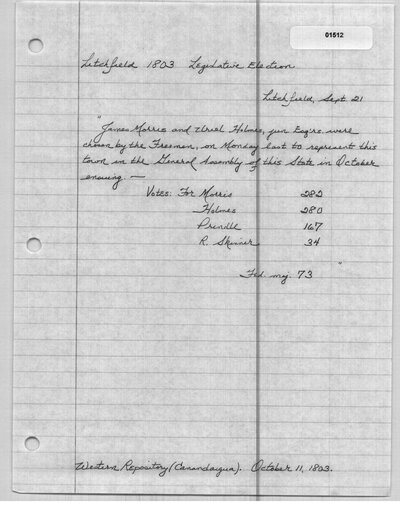 01512
Litchfield 1803 Legislative Election
Litchfield, Sept. 21
"James Morris and Uriel Holmes, jun Esq'rs. were
chosen by the Freemen, on Monday last to represent this
town in the General Assembly of this State in October
ensuing. —
Votes: For Morris 282
Holmes 280
Prindle 167
R. Skinner 34
Fed. maj. 73 "
Western Repository (Canandaigua). October 11, 1803.